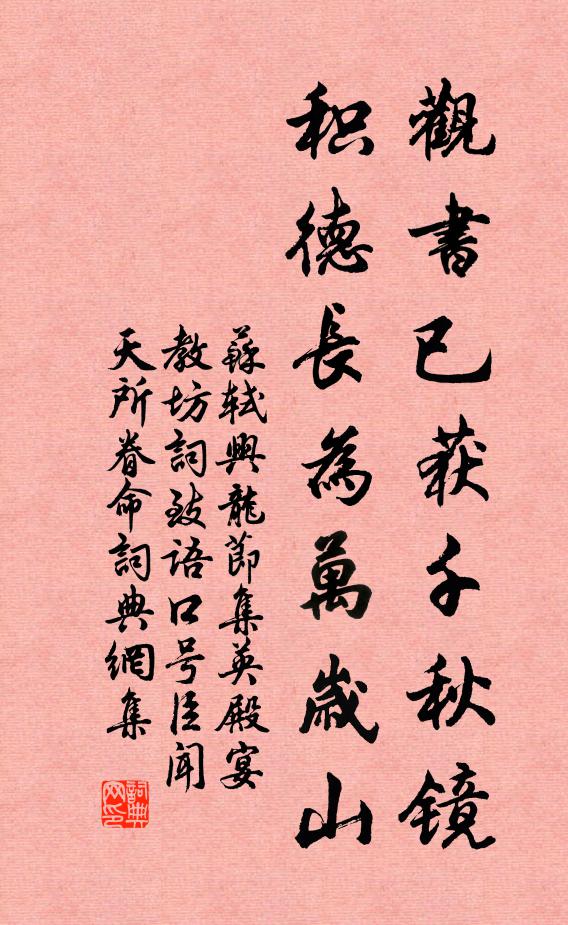 觀書已获千秋镜
积德長為萬歲山
蘇軾興龍節集英殿宴
教坊詞致語口号臣聞
天所眷命詞典網集
詞典
网印